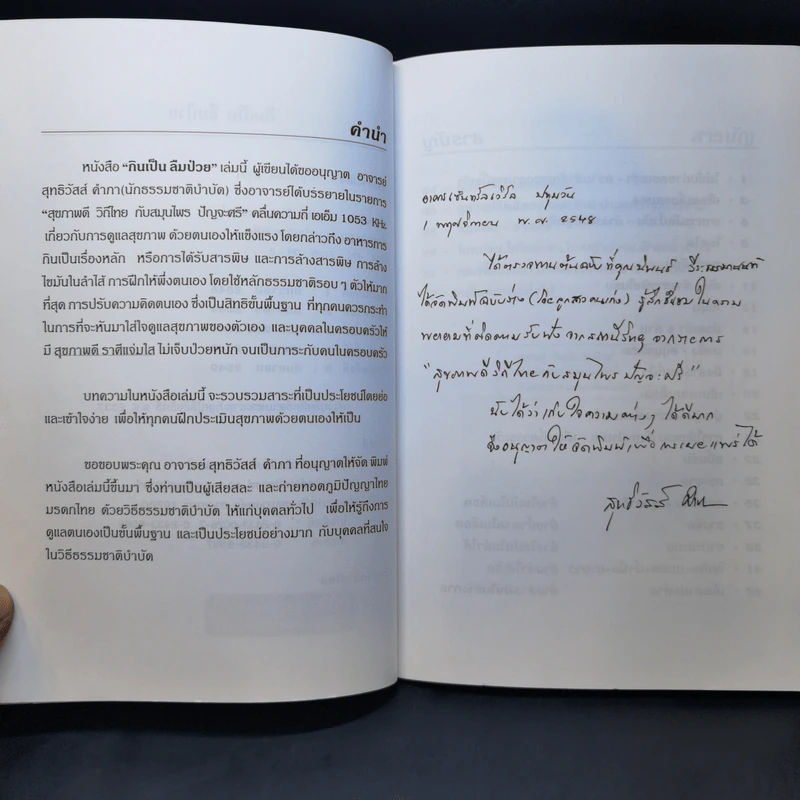 คำนำ
หนังสือ "กินเป็น ลืมป่วย" เล่มนี้ ผู้เขียนได้ขออนุญาต อาจารย์
สุทธิวัสส์ คำภา(นักธรรมชาติบำบัด) ซึ่งอาจารย์ได้บรรยายในรายการ
"สุขภาพดี วิถีไทย กับสมุนไพร ปัญจะศรี" คลื่นความถี่ เอเอ็ม 1053 KHz.
เกี่ยวกับการดูแลสุขภาพ ด้วยตนเองให้แข็งแรง โดยกล่าวถึง อาหารการ
กินเป็นเรื่องหลัก หรือการได้รับสารพิษ และการล้างสารพิษ การล้าง
ไขมันในลำไส้ การฝึกให้พึ่งตนเอง โดยใช้หลักธรรมชาติรอบ ๆ ตัวให้มาก
ที่สุด การปรับความคิดตนเอง ซึ่งเป็นสิทธิขั้นพื้นฐาน ที่ทุกคนควรกระทำ
ในการที่จะหันมาใส่ใจดูแลสุขภาพของตัวเอง และบุคคลในครอบครัวให้
มี สุขภาพดี ราศีแจ่มใส ไม่เจ็บป่วยหนัก จนเป็นภาระกับคนในครอบครัว
บทความในหนังสือเล่มนี้ จะรวบรวมสาระที่เป็นประโยชน์โดยย่อ
และเข้าใจง่าย เพื่อให้ทุกคนฝึกประเมินสุขภาพด้วยตนเองให้เป็น
ขอขอบพระคุณ อาจารย์ สุทธิวัสส์ คำภา ที่อนุญาตให้จัด พิมพ์
หนังสือเล่มนี้ขึ้นมา ซึ่งท่านเป็นผู้เสียสละ และถ่ายทอดภูมิปัญญาไทย
มรดกไทย ด้วยวิธีธรรมชาติบำบัด ให้แก่บุคคลทั่วไป เพื่อให้รู้ถึงการ
ดูแลตนเองเป็นขั้นพื้นฐาน และเป็นประโยชน์อย่างมาก กับบุคคลที่สนใจ
ในวิธีธรรมชาติบำบัด
อาคารเซ็นทรัลเวิลด์ ปทุมวัน
1 พฤศจิกายน พ.ศ. 2548
ได้ตรวจทานต้นฉบับ ที่คุณ
ได้จัดพิมพ์ฉบับร่าง (โดยลูกสาวคนเก่ง) รู้สึกชื่นชม ในความ
พยายามที่ติดตามรับฟัง จากสถานีวิทยุ จากรายการ
"สุขภาพดี วิถีไทย กับสมุนไพร ปัญจะศรี"
นับได้ว่าเก็บใจความต่างๆ ได้ดีมาก
จึงอนุญาตให้จัดพิมพ์เพื่อการเผยแพร่ได้
สุทธิวัสส์ คำภา